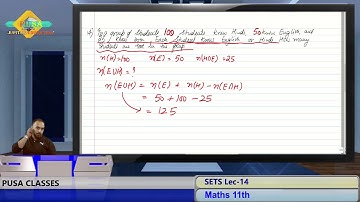 In a group of students 100 students know Hindi, 50 know English and
25 know both. Each student knows English or Hindi. How many
students are there in the group
n(H)=100 n(E) = 50 n(H∩E) = 25
n(E∪H) = ?
n(E∪H) = n(E) + n(H) - n(E∩H)
= 50 + 100 - 25
= 125
PUSA CLASSES
SETS Lec-14
Maths 11th